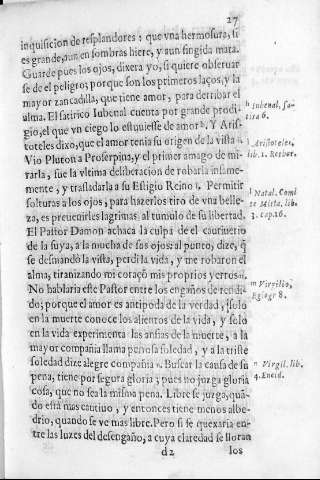 27
inquisicion de resplandores; que vna hermosura, si
es grande, aun en sombras hiere, y aun fingida mata.
Guarde pues los ojos, dixera yo, si quiere obseruar
se de el peligro; porque son los primeros laços, y la
mayor zancadilla, que tiene amor, para derribar el
alma. El satirico Iubenal cuenta por grande prodi-
gio, el que vn ciego lo estuuiesse de amor h. Y Aris-
toteles dixo, que el amor tenia su origen de la vista i.
Vio Pluton a Proserpina, y el primer amago de mi-
rarla, fue la vltima deliberacion de robarla infame-
mente, y trasladarla a su Estigio Reino l. Permitir
solturas a los ojos, para hazerlos tiro de vna belle-
za, es preuenirles lagrimas al tumulo de su libertad.
El Pastor Damon achaca la culpa de el cautiuerio
de la suya, a la mucha de sus ojos: al punto, dize, q̃
se desmandò la vista, perdi la vida, y me robaron el
alma, tiranizando mi coraçõ mis proprios yerros m.
No hablaria este Pastor entre los engaños de rendi-
do; porque el amor es antipoda de la verdad, solo
en la muerte conoce los alientos de la vida, y solo
en la vida experimenta las ansias de la muerte, a la
mayor compañia llama penosa soledad, y a la triste
soledad dize alegre compañia n. Buscar la causa de su
pena, tiene por segura gloria; pues no juzga gloria
cosa, que no sea la misma pena. Libre se juzga, quã-
do està mas cautiuo, y entonces tiene menos albe-
drio, quando se ve mas libre. Pero si se quexaria en-
tre las luzes del desengaño, a cuya claredad se lloran
d2 los
h Iubenal, sa-
tira 6.
i Aristoteles,
lib. 1. Rethor.
l Natal. Comi
te Mista, lib.
3. cap. 16.
m Virgilio,
Eglogr 8.
n Virgil. lib.
4. Eneid.